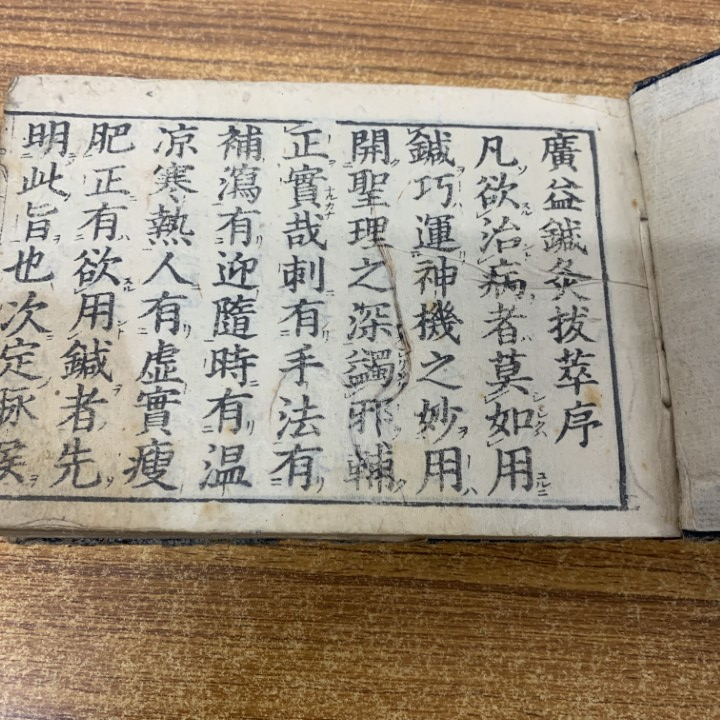 廣益鍼灸拔萃序
凡欲治病者莫如用
鍼巧運神機之妙用
開聖理之深蠲邪輔
正實哉刺有手法有
補瀉有迎隨時有温
凉寒熱人有虛實瘦
肥正有欲用鍼者先
明此旨也次定脉侯